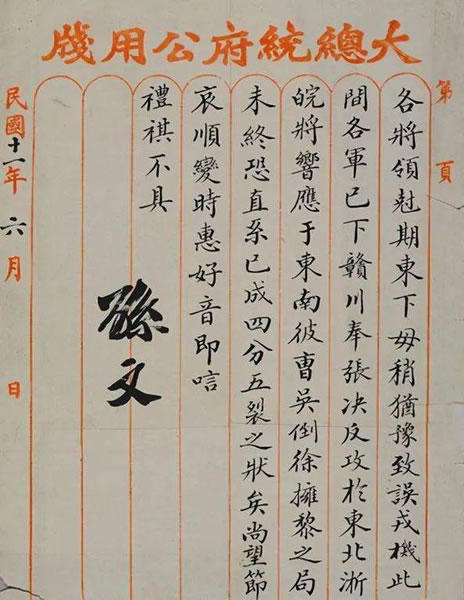 大總統府公用牋
第 頁
各將領尅期東下毋稍猶豫致誤戎機此
間各軍已下贛川奉張决反攻於東北浙
皖將響應于東南彼曹吳倒徐擁黎之局
未終恐直系已成四分五裂之狀矣尚望節
哀順變時惠好音即唁
禮祺不具
孫文
民國十一年六月 日